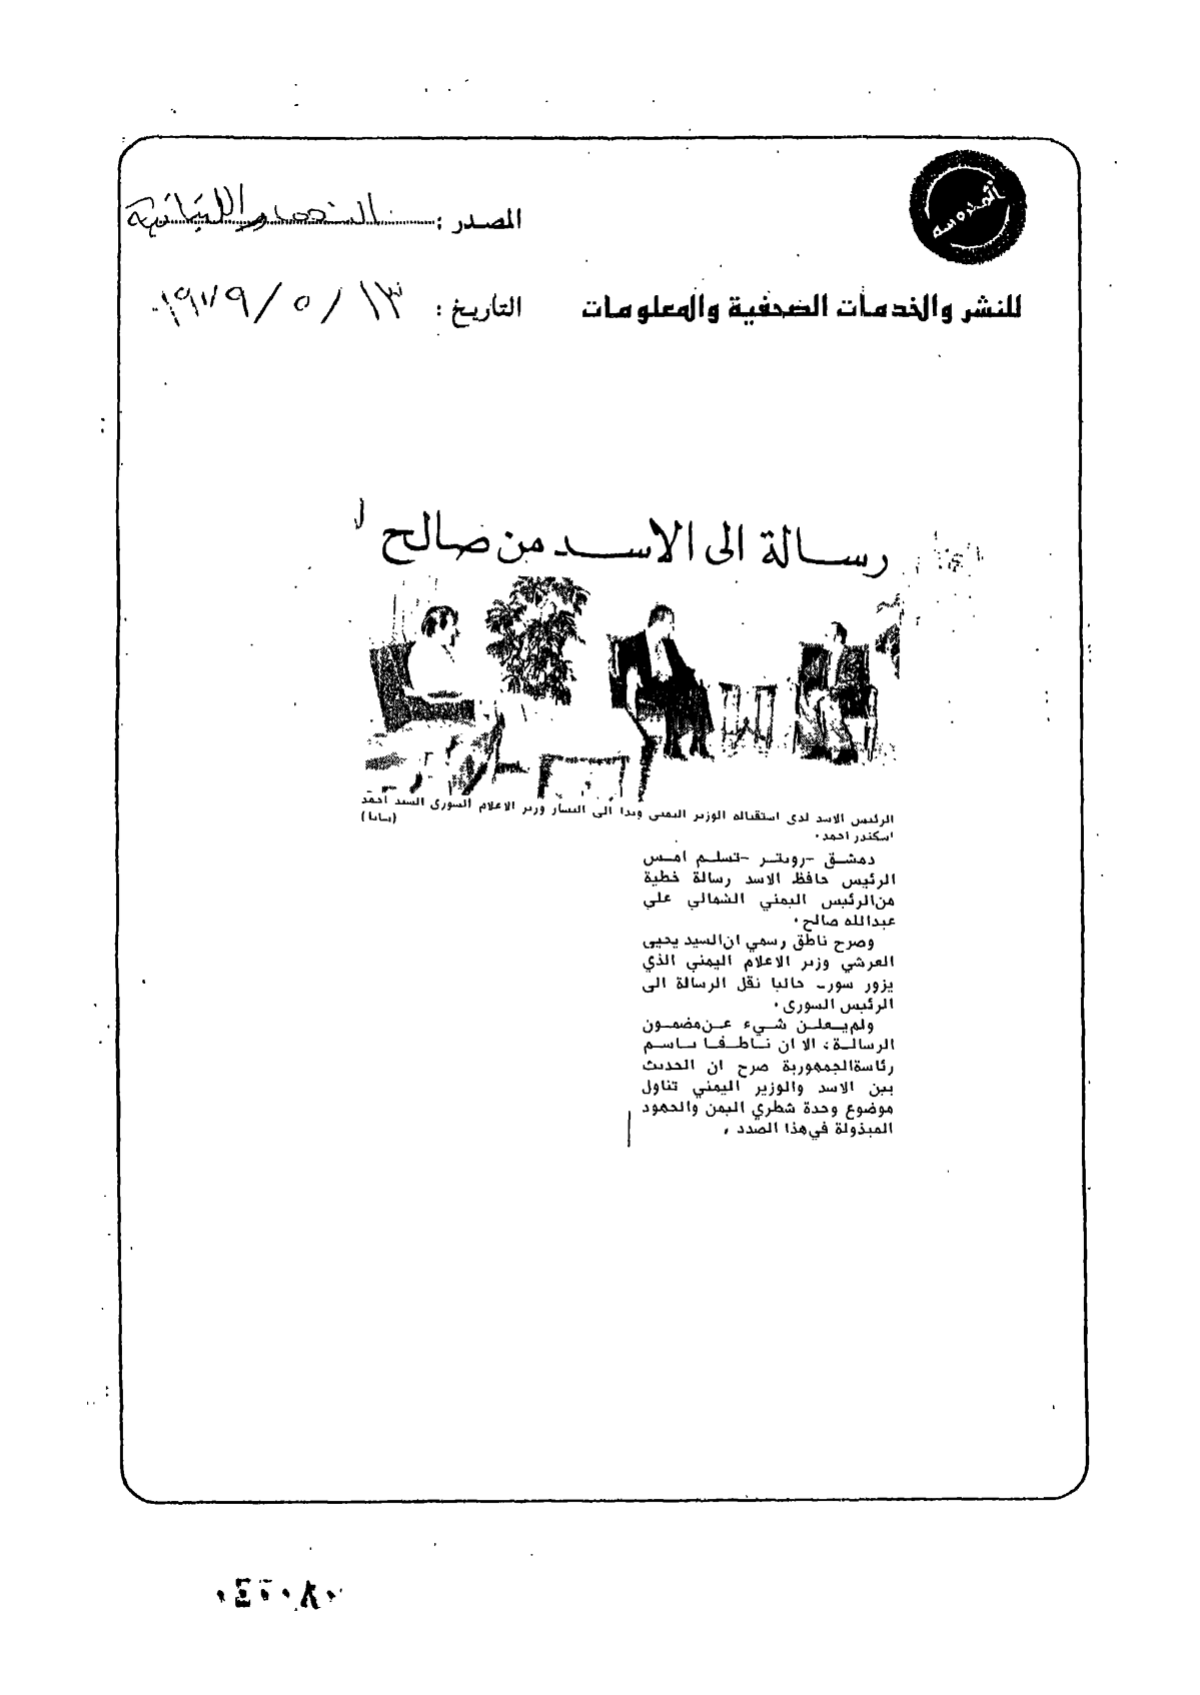 المحروسة
المصدر : النهار اللبنانية
للنشر والخدمات الصحفية والمعلومات
التاريخ : ١٣ / ٥ / ١٩٧٩
رسالة الى الاسد من صالح
الرئيس الاسد لدى استقباله الوزير اليمني وبدا الى اليسار وزير الاعلام السوري السيد احمد
اسكندر احمد . (سانا)
دمشق - رويتر - تسلم امس
الرئيس حافظ الاسد رسالة خطية
من الرئيس اليمني الشمالي علي
عبدالله صالح .
وصرح ناطق رسمي ان السيد يحيى
العرشي وزير الاعلام اليمني الذي
يزور حاليا نقل الرسالة الى
الرئيس السوري .
ولم يعلن شيء عن مضمون
الرسالة ، الا ان ناطقا باسم
رئاسة الجمهورية صرح ان الحديث
بين الاسد والوزير اليمني تناول
موضوع وحدة شطري اليمن والجهود
المبذولة في هذا الصدد .